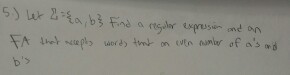 5.) Let Σ={a,b} Find a regular expression and an
FA that accepts words that an even number of a's and
b's